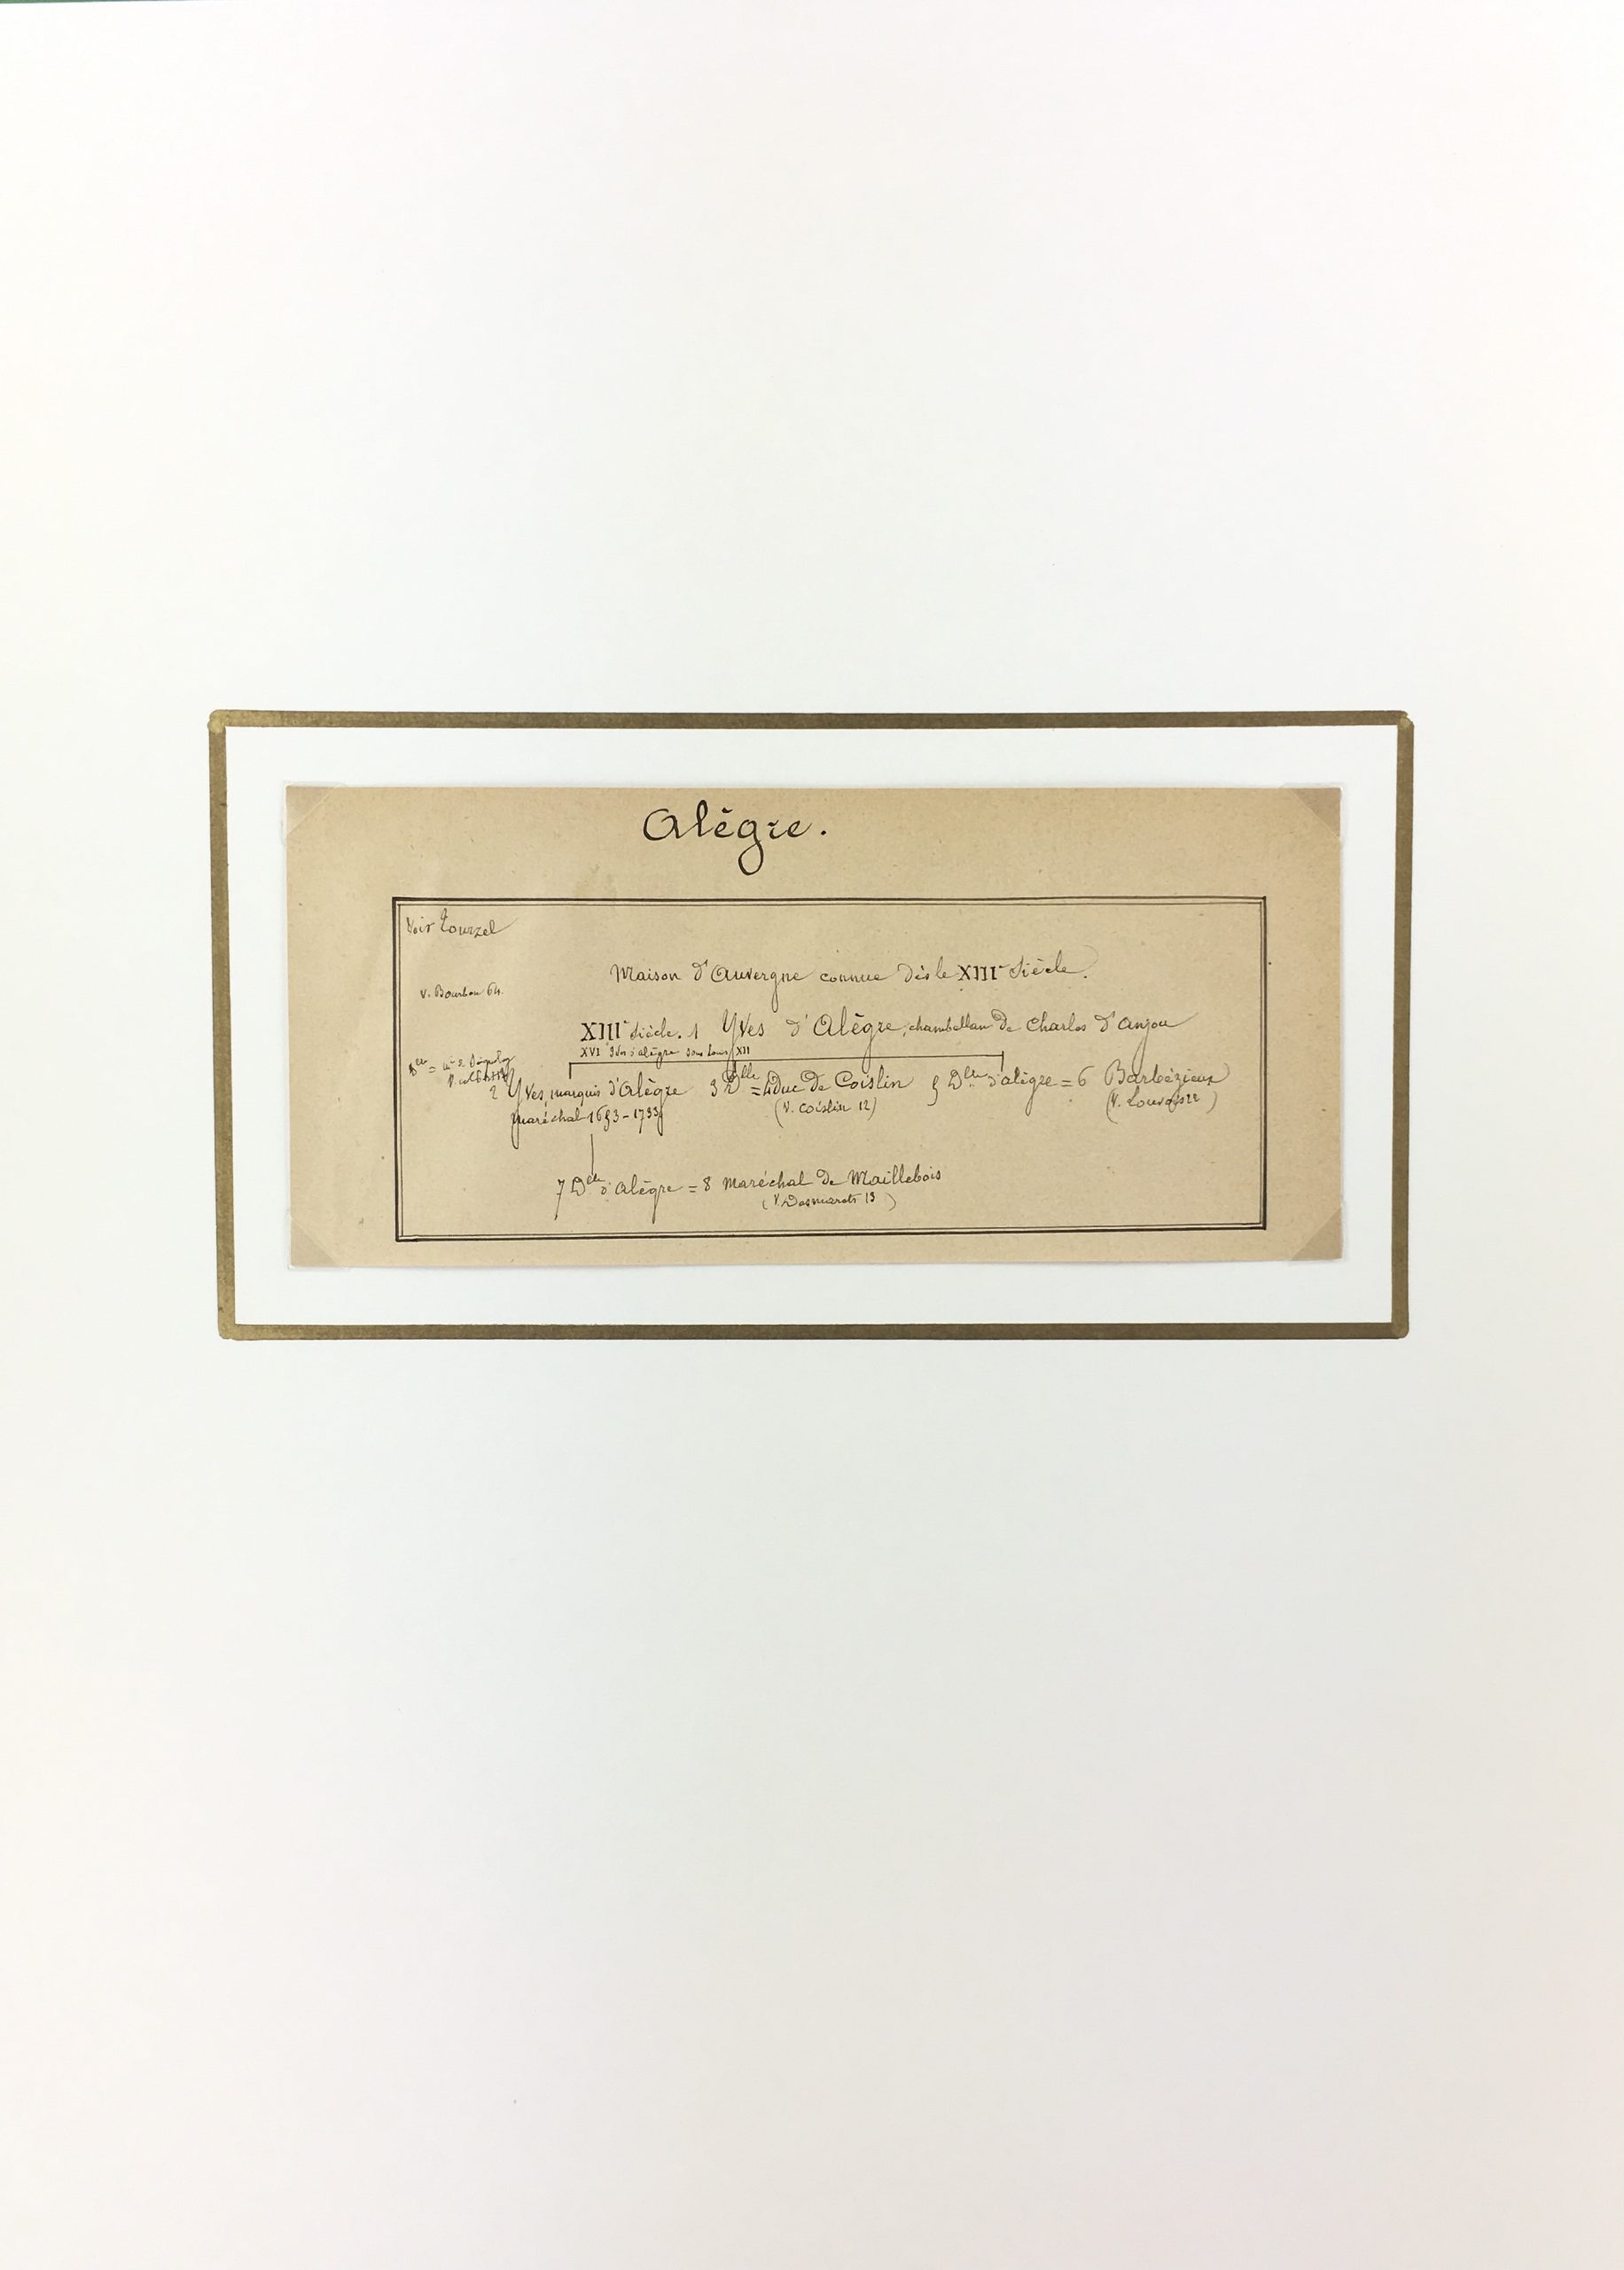 Alègre.
Voir Tourzel
Maison d'Auvergne connue dès le XIIIe Siècle.
V. Bourbon 64.
XIIIe Siècle. 1 Yves d'Alègre, chambellan de Charles d'Anjou
XVI Yves d'alègre sous Louis XII
Delle =
2 Yves, marquis d'Alègre 3 Delle = 4 Duc de Coislin 5 Delle d'alègre = 6 Barbézieux
maréchal 1653-1733 (V. Coislin 12) (V. Louvois 22)
7 Delle d'Alègre = 8 Maréchal de Maillebois
(V. Desmarets 13)